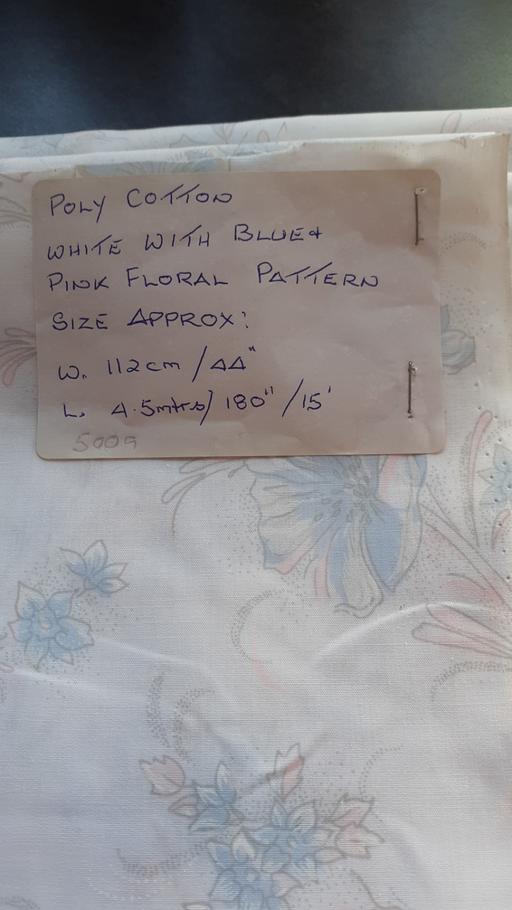 POLY COTTON
WHITE WITH BLUE+
PINK FLORAL PATTERN
SIZE APPROX:
W. 112cm / 44"
L. 4.5mtrs/ 180" / 15'
500g